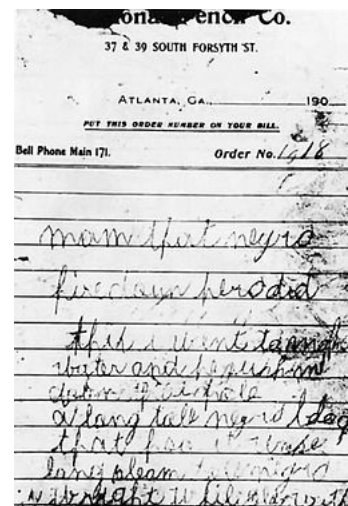 Co.
37 & 39 SOUTH FORSYTH ST.
ATLANTA, GA., 190
PUT THIS ORDER NUMBER ON YOUR BILL.
Bell Phone Main 171. Order No. 1918
mam that negro
hire down here did
this i went to make
water and he push me
down that hole
a long tall negro black
that hoo it wase
long sleam tall negro
i wright while play with